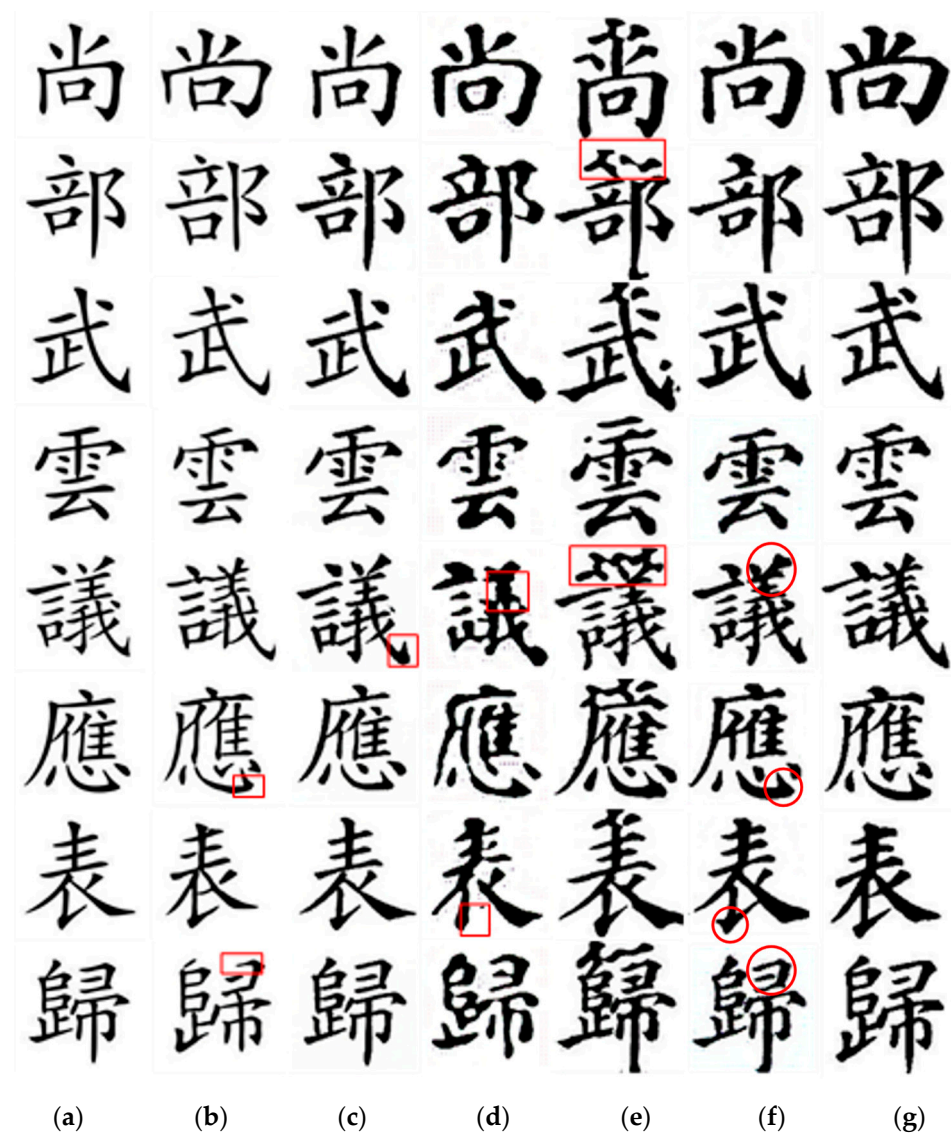 尚 尚 尚 尚 尚 尚 尚
部 部 部 部 部 部 部
武 武 武 武 武 武 武
雲 雲 雲 雲 雲 雲 雲
議 議 議 議 議 議 議
應 應 應 應 應 應 應
表 表 表 表 表 表 表
歸 歸 歸 歸 歸 歸 歸
(a) (b) (c) (d) (e) (f) (g)